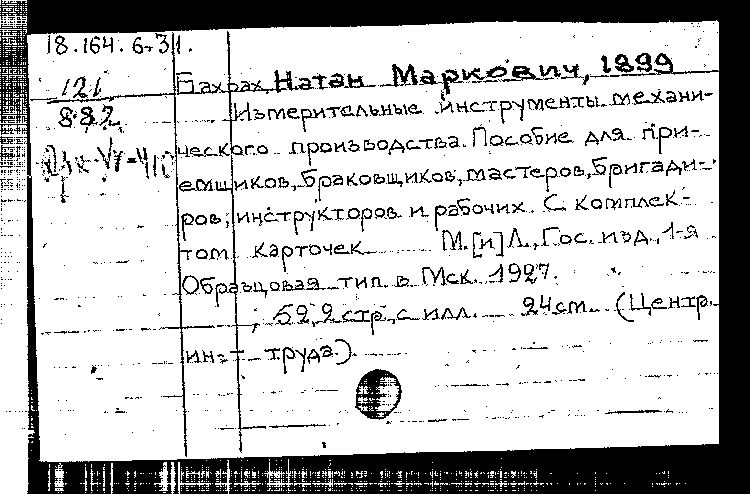 18.164.6-31.
121
882
Бахрах, Натан Маркович, 1899
Измерительные инструменты механи-
ческого производства. Пособие для при-
емщиков, браковщиков, мастеров, бригади-
ров, инструкторов и рабочих. С комплек-
том карточек М.[и]Л., Гос. изд., 1-я
Образцовая тип. в Мск. 1927.
, 52, 2 стр. с илл. 24 см. (Центр.
ин-т труда.)